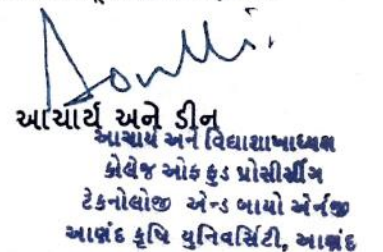 આચાર્ય અને ડીન
આચાર્ય અને વિદ્યાશાખાધ્યક્ષ
કોલેજ ઓફ ફુડ પ્રોસીસીંગ
ટેકનોલોજી એન્ડ બાયો એનર્જી
આણંદ કૃષિ યુનિવર્સિટી, આણંદ